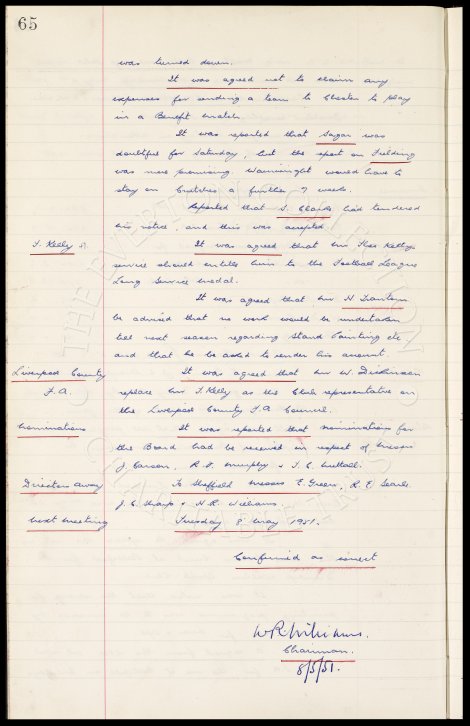 65
was turned down.
It was agreed not to claim any
expenses for sending a team to Chester to play
in a Benefit match.
It was reported that Sagar was
doubtful for Saturday, but the report on Fielding
was more promising. Wainwright would have to
stay on crutches a further 7 weeks.
Reported that S. Clarke had tendered
his notice, and this was accepted.
T. Kelly It was agreed that Mr Theo Kellys
service should entitle him to the Football League
Long Service medal.
It was agreed that Mr H
be advised that no work would be undertaken
till next season regarding Stand Painting etc
and that he be asked to render his account.
Liverpool County It was agreed that Mr W. Dickinson
F.A. replace Mr T. Kelly as the Club representative on
the Liverpool County F.A Council.
Nominations It was reported that nominations for
the Board had been received in respect of Messrs
J. Carson, R. J. Murphy & T. C. Nuttall.
Directors away To Sheffield Messrs E. Green, R. E. Searle.
J. C. Sharp & W. R. Williams.
Next meeting Tuesday 8 May 1951.
Confirmed as correct
W R Williams.
Chairman.
8/5/51.